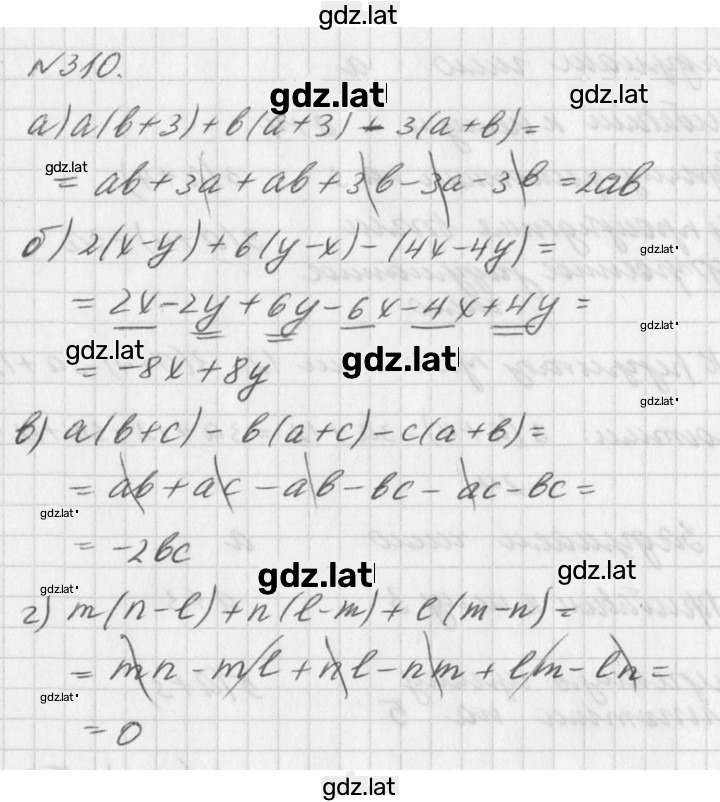 gdz.lat
N310.
gdz.lat
gdz.lat
а) a(b+3)+b(a+3)-3(a+b)=
gdz.lat
= ab+3a+ab+3b-3a-3b=2ab
б) 2(x-y)+6(y-x)-(4x-4y)=
gdz.lat
= 2x-2y+6y-6x-4x+4y=
gdz.lat
gdz.lat
gdz.lat
= -8x+8y
gdz.lat
в) a(b+c)-b(a+c)-c(a+b)=
= ab+ac-ab-bc-ac-bc=
gdz.lat
= -2bc
gdz.lat
gdz.lat
gdz.lat
г) m(n-l)+n(l-m)+l(m-n)=
= mn-ml+nl-nm+lm-ln=
gdz.lat
= 0
gdz.lat